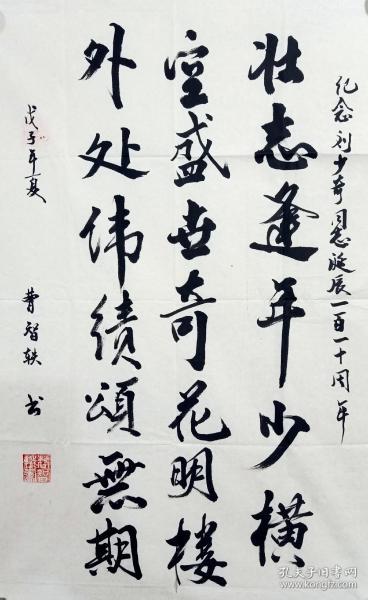 纪念刘少奇同志诞辰一百一十周年
壮志逢年少横
空盛世奇花明楼
外处伟绩頌無期
戊子年夏 曹智轶书
孔夫子旧书网